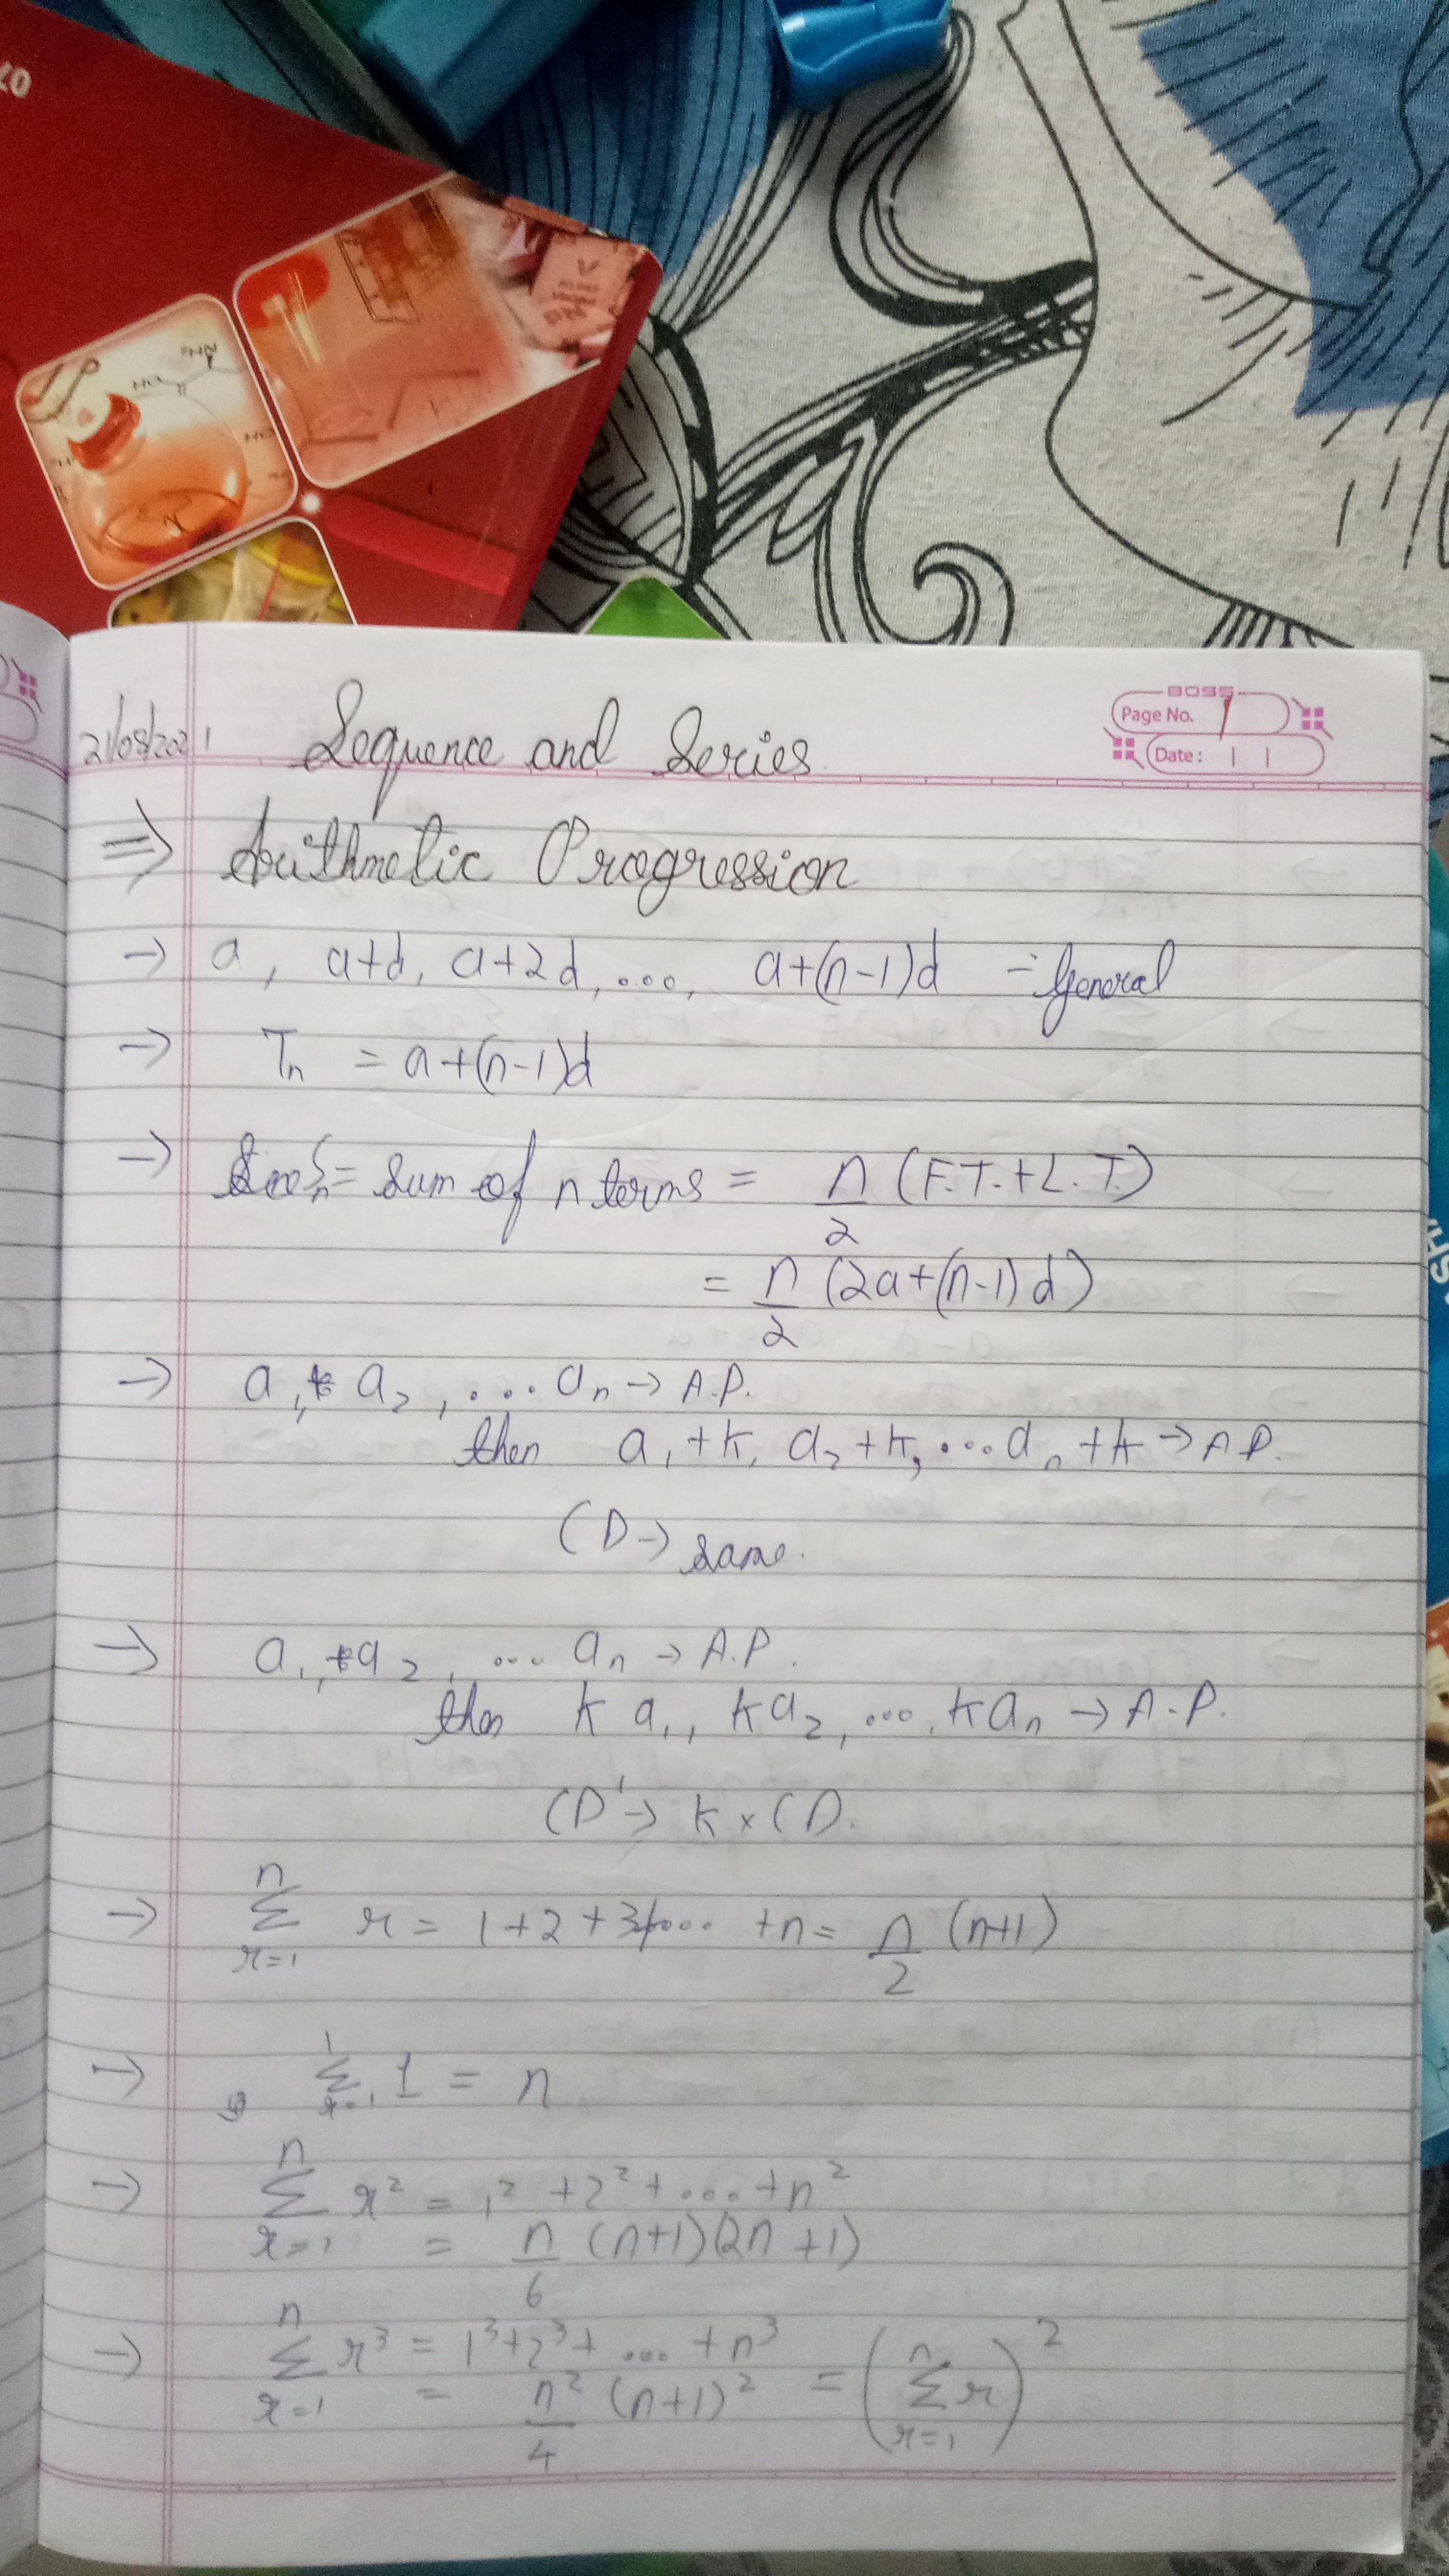 07
BOSS
Page No. 1
Date:
21/08/2021 Sequence and Series
⇒ Arithmetic Progression
→ a, a+d, a+2d, ..., a+(n-1)d - General
→ Tn = a+(n-1)d
→ Sn = Sum of n terms = n/2 (F.T.+L.T.)
= n/2 (2a+(n-1)d)
→ a₁, a₂, ... an → A.P.
then a₁+k, a₂+k, ... an+k → A.P.
CD → same.
→ a₁, a₂, ... an → A.P.
then ka₁, ka₂, ..., kan → A.P.
CD' → k × CD.
→ n∑r=1 r = 1+2+3+... +n = n/2 (n+1)
→ 1∑r=1 1 = n
→ n∑r=1 r² = 1² +2² + ... +n²
= n/6 (n+1)(2n+1)
→ n∑r=1 r³ = 1³+2³+ ... +n³
= n²/4 (n+1)² = (n∑r=1 r)²